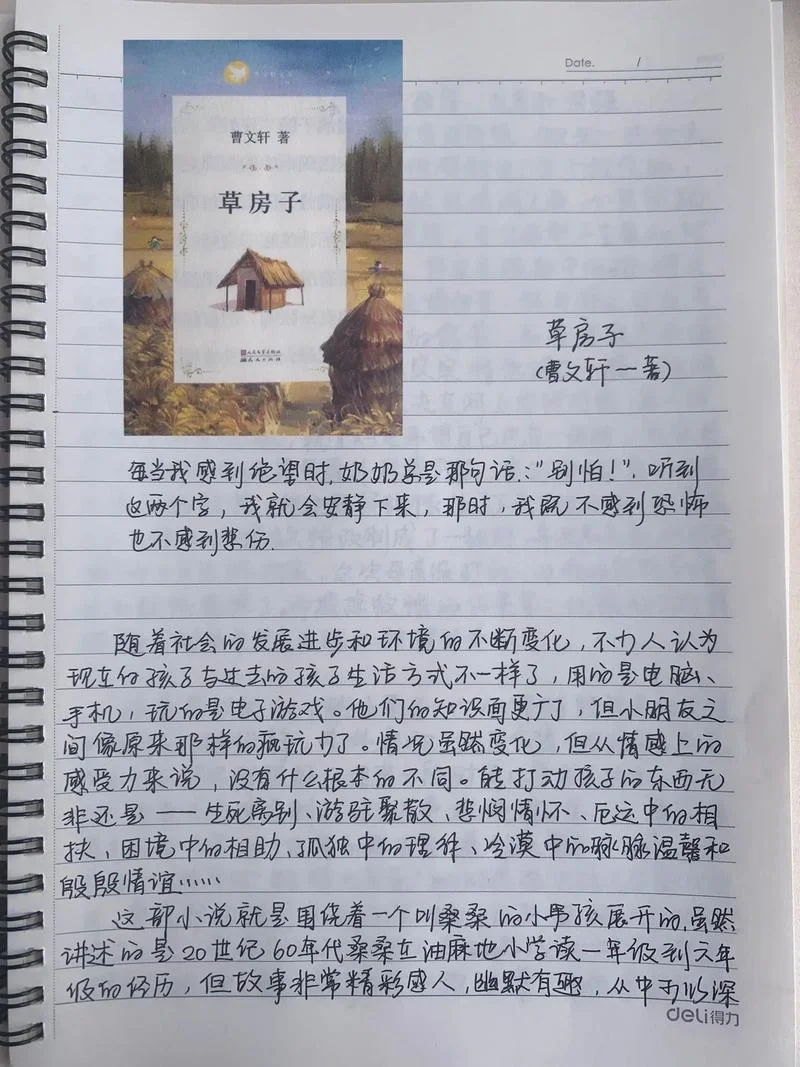 Date. /
曹文轩 著
草房子
人民文学出版社
草房子
(曹文轩一著)
每当我感到绝望时,奶奶总是那句话:"别怕!",听到
这两个字,我就会安静下来,那时,我既不感到恐怖
也不感到悲伤.
随着社会的发展进步和环境的不断变化,不少人认为
现在的孩子与过去的孩子生活方式不一样了,用的是电脑、
手机,玩的是电子游戏。他们的知识面更广了,但小朋友之
间像原来那样的疯玩少了。情况虽然变化,但从情感上的
感受力来说,没有什么根本的不同。能打动孩子的东西无
非还是——生死离别、游驻聚散、悲悯情怀、厄运中的相
扶、困境中的相助、孤独中的理解、冷漠中的脉脉温馨和
殷殷情谊……
这部小说就是围绕着一个叫桑桑的小男孩展开的,虽然
讲述的是20世纪60年代桑桑在油麻地小学读一年级到六年
级的经历,但故事非常精彩感人,幽默有趣,从中可以深
deli得力